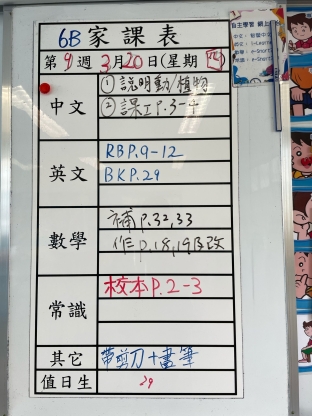 6B 家課表
第9週 3月20日(星期四)
中文
①説明動/植物
②課工P.3-4
英文
RBP.9-12
BKP.29
數學
補P.32,33
作P.18,19及改
常識
校本P.2-3
其它
帶剪刀+畫筆
值日生
29
自主學習 網上